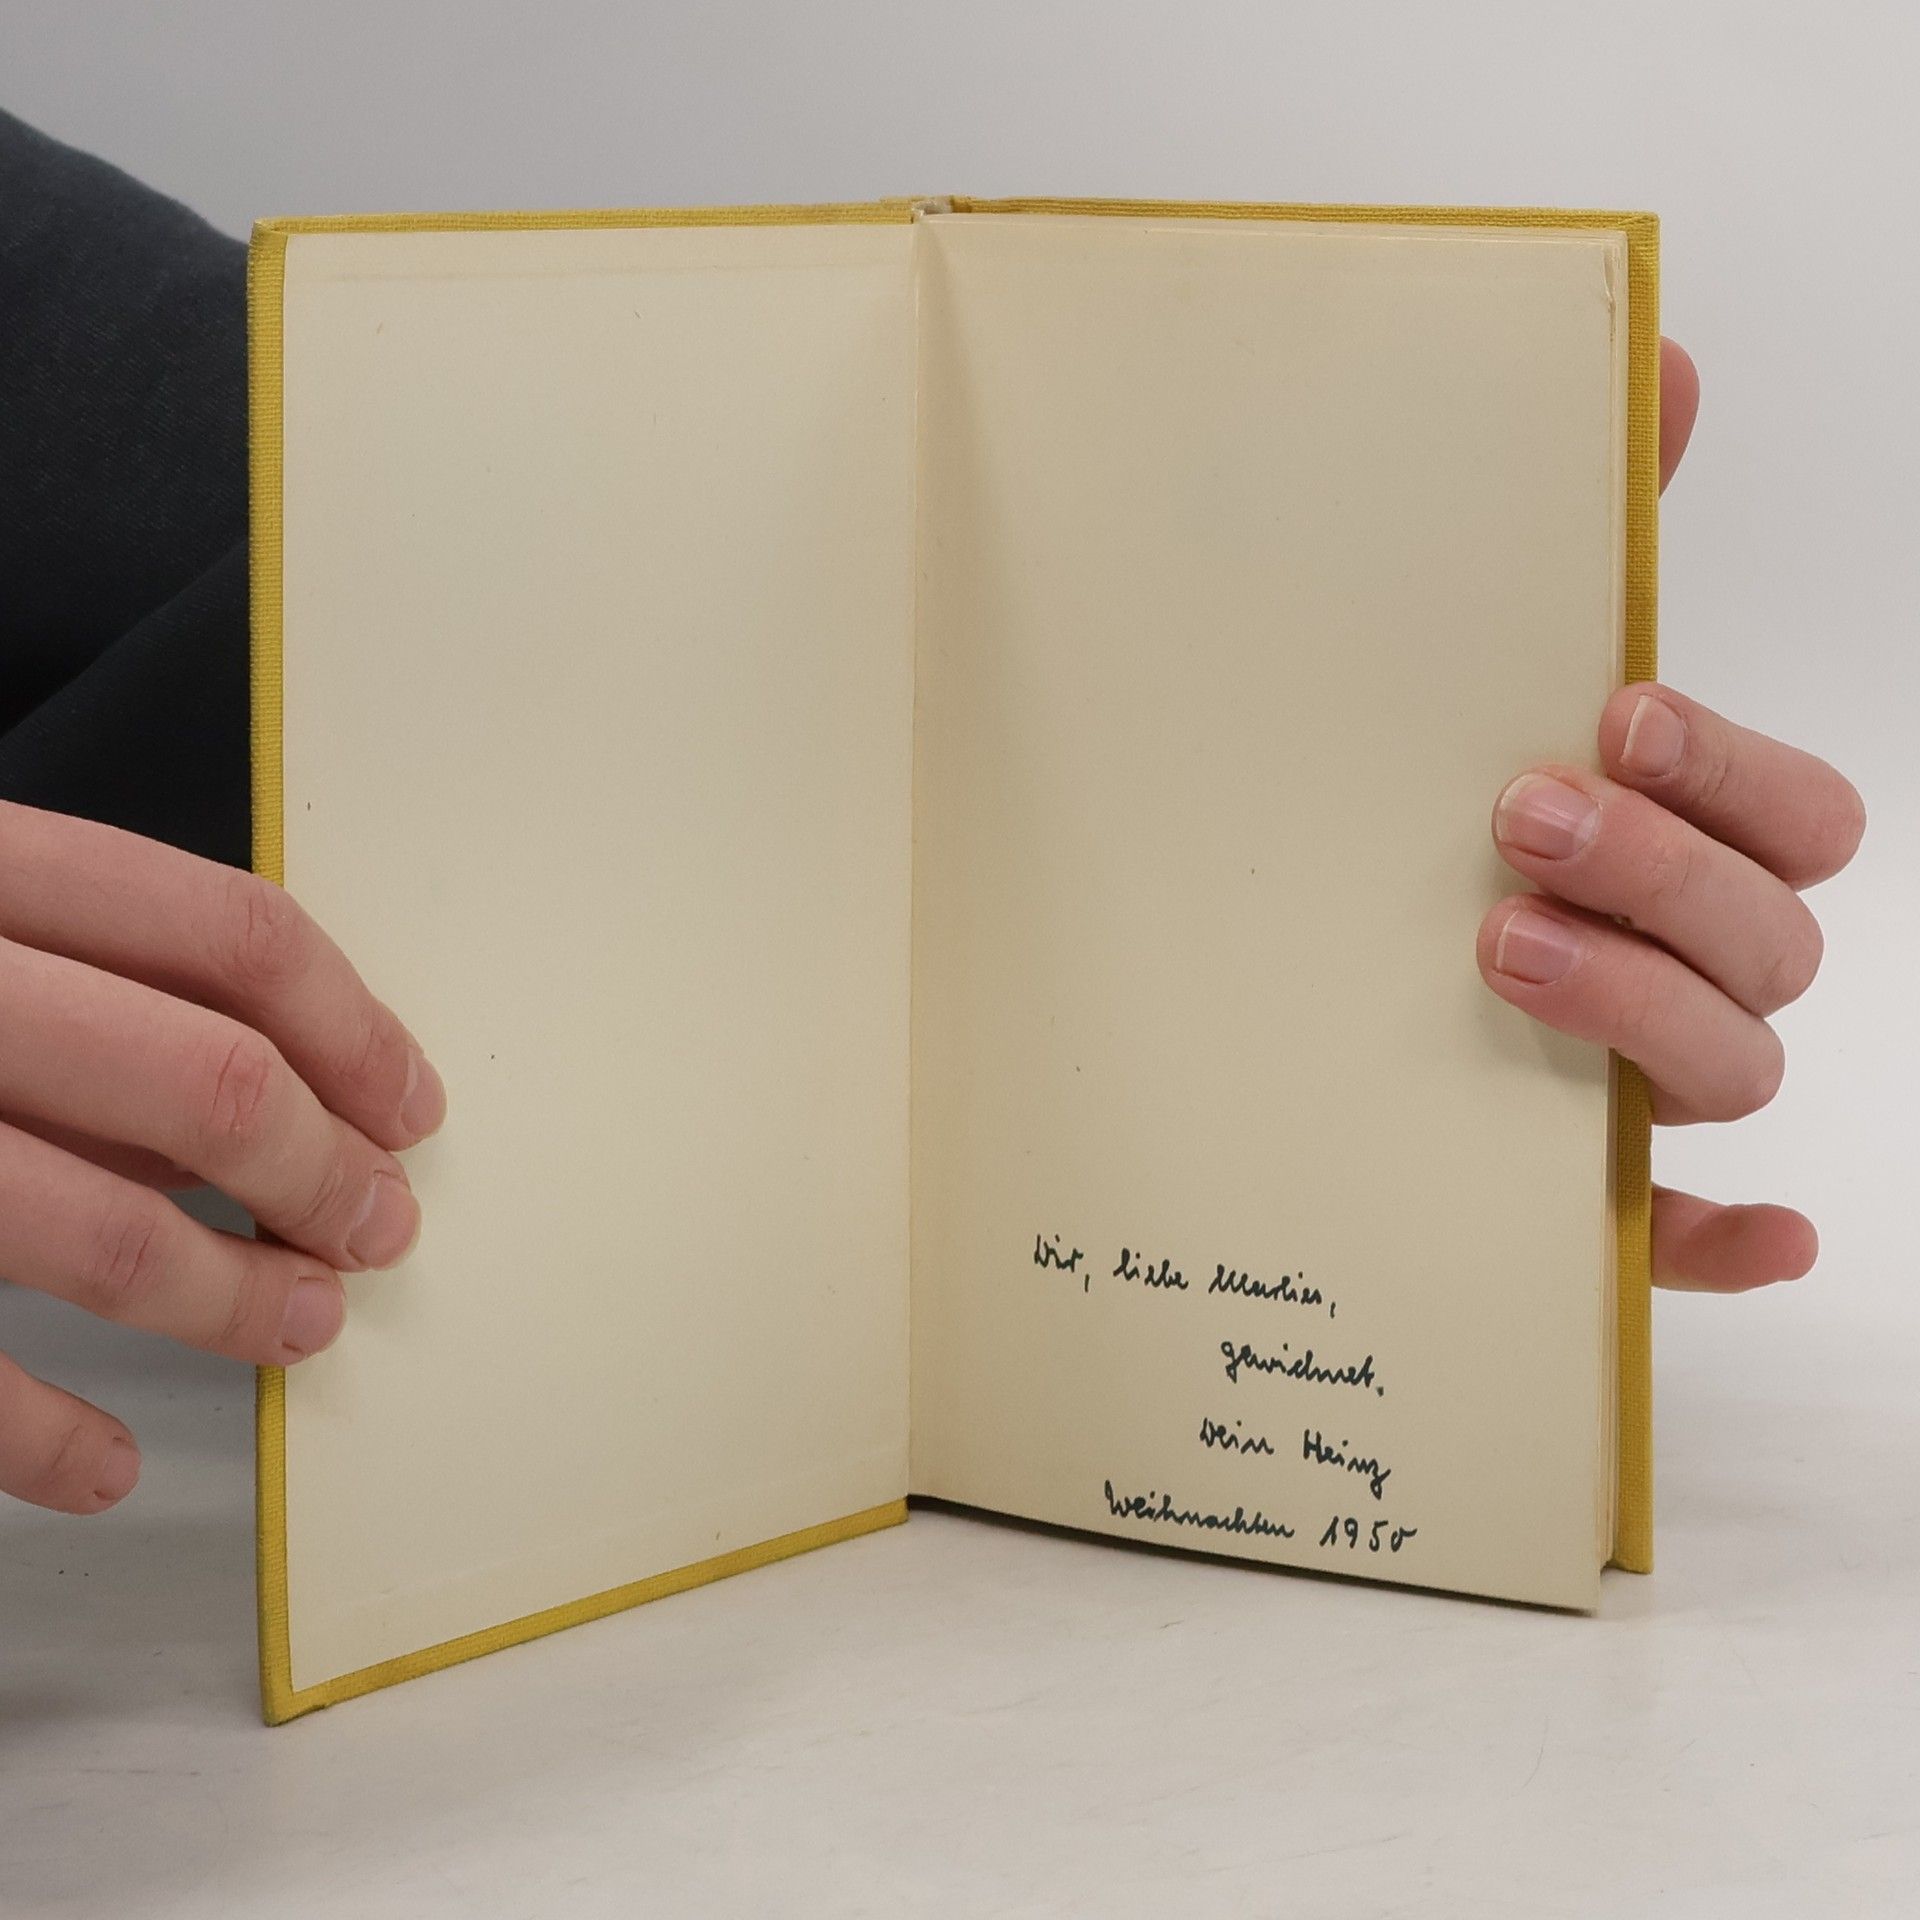 Dir, liebe Marlies,
gewidmet.
Dein Heinz
Weihnachten 1950